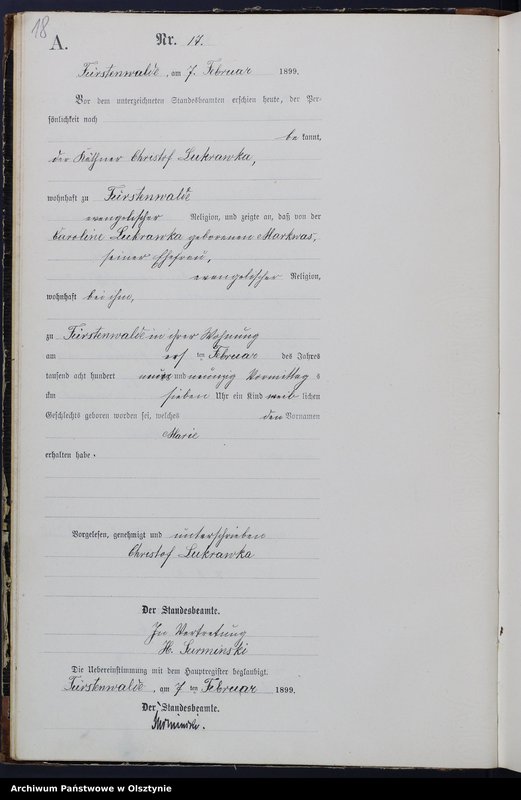 18
A.
Nr. 17.
Fürstenwalde, am 7. Februar 1899.
Vor dem unterzeichneten Standesbeamten erschien heute, der Per-
sönlichkeit nach
be kannt,
der Käthner Christof Lukrawka,
wohnhaft zu Fürstenwalde
evangelischer Religion, und zeigte an, daß von der
Caroline Lukrawka geborenen Markwas,
seiner Ehefrau,
evangelischer Religion,
wohnhaft bei ihm,
zu Fürstenwalde in ihrer Wohnung
am ten Februar des Jahres
tausend acht hundert neun und neunzig Vormittags
um sieben Uhr ein Kind weib lichen
Geschlechts geboren worden sei, welches den Vornamen
Marie
erhalten habe.
Vorgelesen, genehmigt und unterschrieben
Christof Lukrawka
Der Standesbeamte.
In Vertretung
H. Surminski
Die Uebereinstimmung mit dem Hauptregister beglaubigt.
Fürstenwalde, am 7 ten Februar 1899.
Der Standesbeamte.
Surminski.
Archiwum Państwowe w Olsztynie